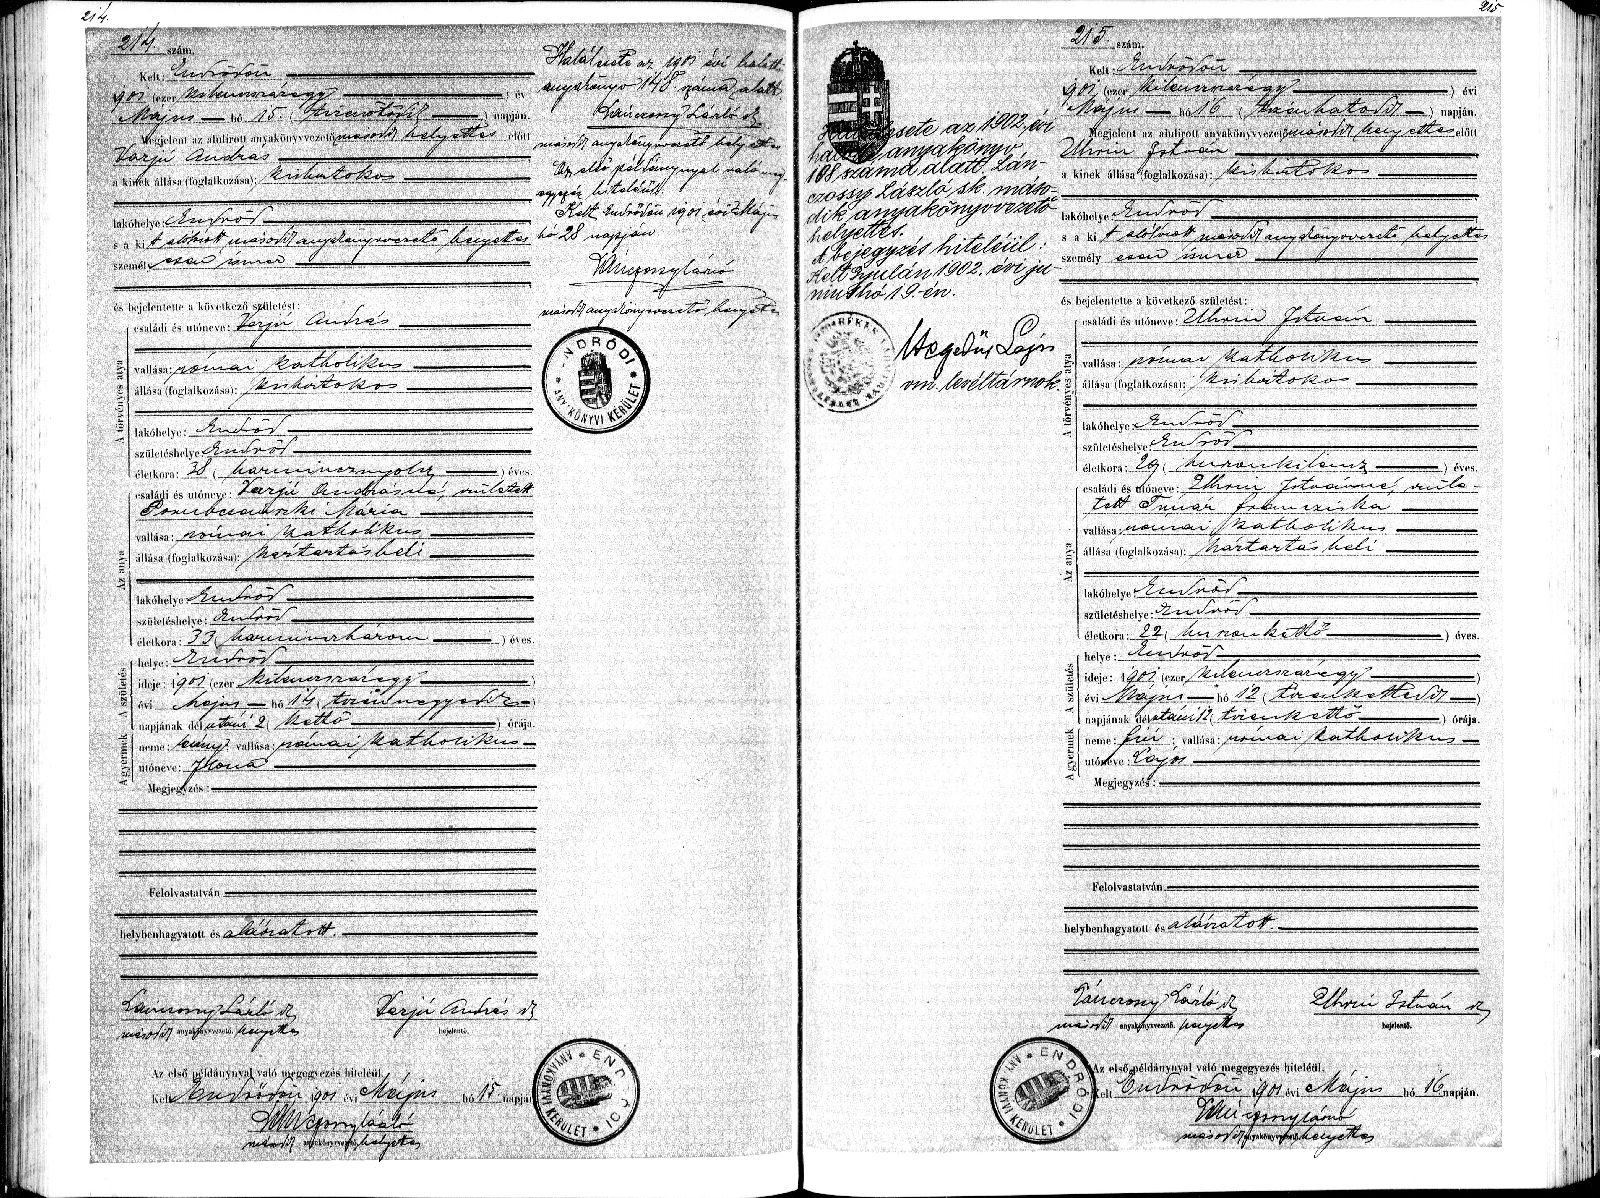 214.
214. szám.
Kelt: Endrődön
1901 (ezer kilenczszázegy) év
Május hó 15. (tizenötödik) napján.
Megjelent az alulirott anyakönyvvezető második helyettes előtt
Varjú András
a kinek állása (foglalkozása): kisbirtokos
lakóhelye: Endrőd
s a kit alólirott második anyakönyvvezető helyettes
személyesen ismer
és bejelentette a következő születést:
A törvényes atya
családi és utóneve: Varjú András
vallása: római katholikus
állása (foglalkozása): kisbirtokos
lakóhelye: Endrőd
születéshelye: Endrőd
életkora: 38 (harmincznyolcz) éves.
Az anya
családi és utóneve: Varjú Andrásné, született
Mária
vallása: római katholikus
állása (foglalkozása): háztartásbeli
lakóhelye: Endrőd
születéshelye: Endrőd
életkora: 33 (harminczhárom) éves.
A születés
helye: Endrőd
ideje: 1901 (ezer kilenczszázegy)
évi Május hó 14 (tizennegyedik)
napjának délutáni 2 (kettő) órája.
A gyermek
neme: leány; vallása: római katholikus
utóneve: Ilona
Megjegyzés:
Felolvastatván
helybenhagyatott és aláíratott.
Lánczossy László sk
második anyakönyvvezető helyettes
Varjú András sk
bejelentő.
Az első példánynyal való megegyezés hiteléül.
Kelt Endrődön 1901 évi Május hó 15 napján
Lánczossy László
második anyakönyvvezető helyettes
Halálesete az 1901 évi halotti
anyakönyv 148 száma alatt.
Lánczossy László sk
második anyakönyvvezető helyettes
Az első példánynyal való meg-
egyezés hiteléül
Kelt Endrődön 1901 évi Május
hó 28 napján
Lánczossy László
második anyakönyvvezető helyettes
ENDRŐDI
ANYAKÖNYVI KERÜLET
ENDRŐDI
ANYAKÖNYVI KERÜLET
215
Halálesete az 1902. évi
halotti anyakönyv
108 száma alatt. Lán-
czossy László sk. máso-
dik anyakönyvvezető
helyettes.
A bejegyzés hiteléül:
Kelt Gyulán 1902. évi ju-
nius hó 19-én.
Hegedűs Lajos
vm. levéltárnok
215. szám.
Kelt: Endrődön
1901 (ezer kilenczszázegy) évi
Május hó 16 (tizenhatodik) napján.
Megjelent az alulirott anyakönyvvezető második helyettes előtt
Uhrin István
a kinek állása (foglalkozása): kisbirtokos
lakóhelye: Endrőd
s a kit alólirott második anyakönyvvezető helyettes
személyesen ismer
és bejelentette a következő születést:
A törvényes atya
családi és utóneve: Uhrin István
vallása: római katholikus
állása (foglalkozása): kisbirtokos
lakóhelye: Endrőd
születéshelye: Endrőd
életkora: 29 (huszonkilencz) éves.
Az anya
családi és utóneve: Uhrin Istvánné, szüle-
tett Francziska
vallása: római katholikus
állása (foglalkozása): háztartásbeli
lakóhelye: Endrőd
születéshelye: Endrőd
életkora: 22 (huszonkettő) éves.
A születés
helye: Endrőd
ideje: 1901 (ezer kilenczszázegy)
évi Május hó 12 (tizenkettedik)
napjának délutáni 12 (tizenkettő) órája.
A gyermek
neme: fiú; vallása: római katholikus
utóneve: Lajos
Megjegyzés:
Felolvastatván
helybenhagyatott és aláíratott.
Lánczossy László sk
második anyakönyvvezető. helyettes
Uhrin István sk
bejelentő.
Az első példánynyal való megegyezés hiteléül.
Kelt Endrődön 1901 évi Május hó 16 napján.
Lánczossy László
második anyakönyvvezető helyettes
ENDRŐDI
ANYAKÖNYVI KERÜLET